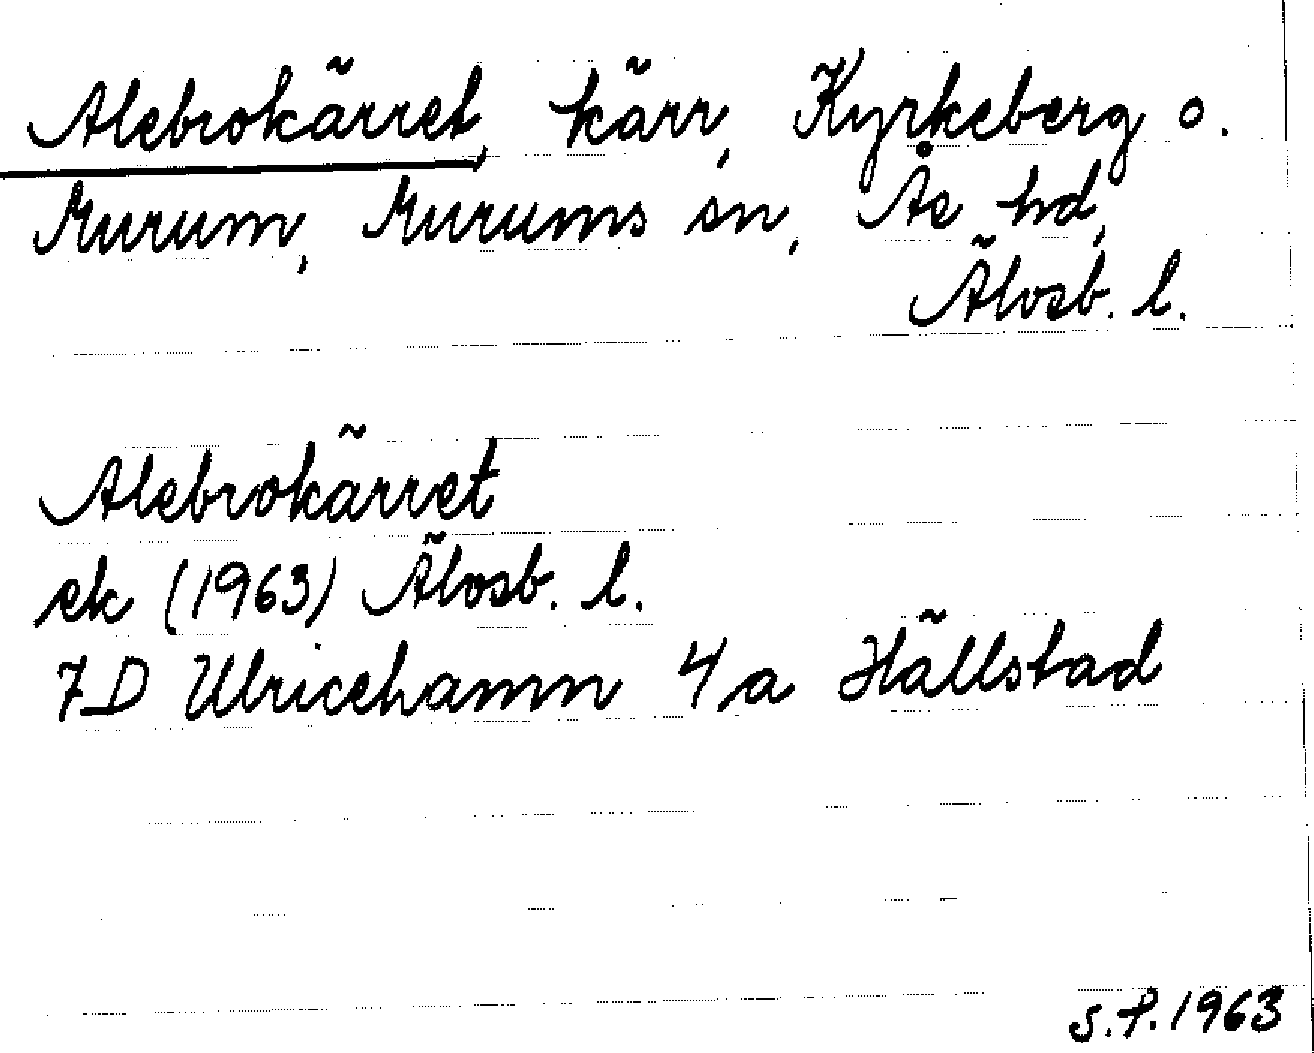 Alebrokärret, kärr, Kyrkeberg o.
Murum, Murums sn, Ås hd,
Älvsb. l.
Alebrokärret
ek (1963) Älvsb. l.
7D Ulricehamn 4a Hällstad
S.P. 1963